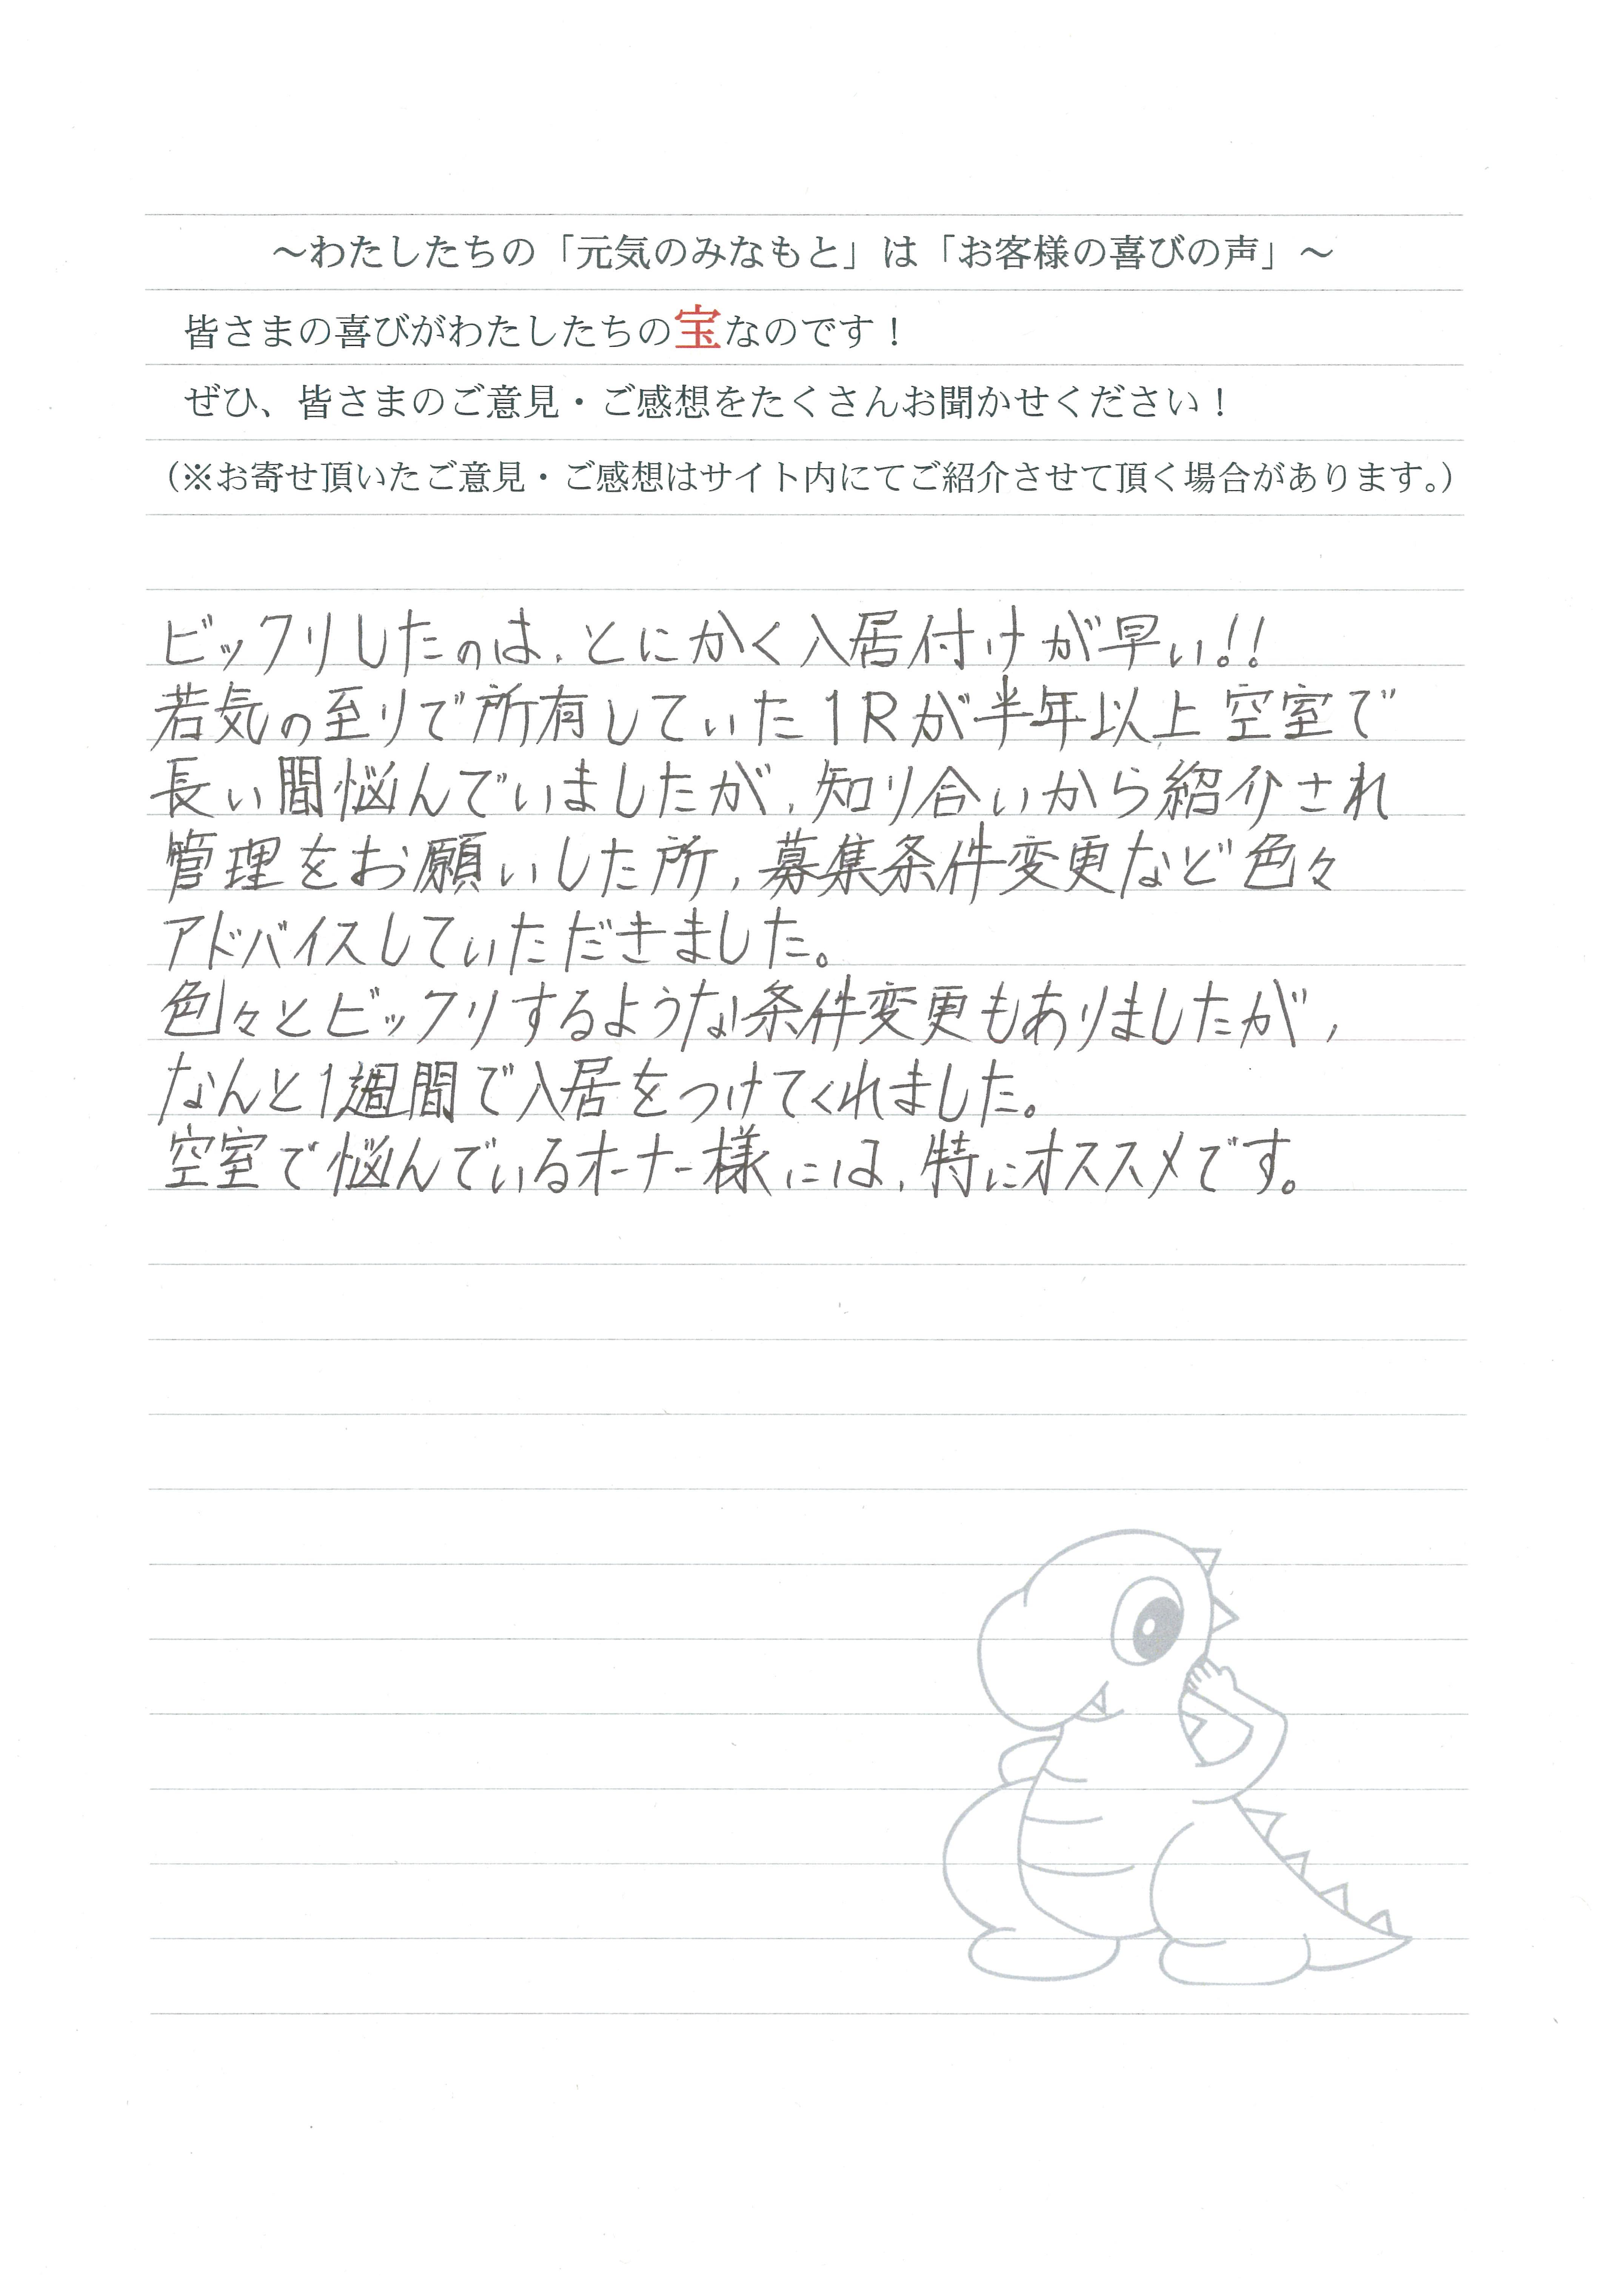 ～わたしたちの「元気のみなもと」は「お客様の喜びの声」～
皆さまの喜びがわたしたちの宝なのです！
ぜひ、皆さまのご意見・ご感想をたくさんお聞かせください！
（※お寄せ頂いたご意見・ご感想はサイト内にてご紹介させて頂く場合があります。）
ビックリしたのは、とにかく入居付けが早い!!
若気の至りで所有していた1Rが半年以上空室で
長い間悩んでいましたが、知り合いから紹介され
管理をお願いした所、募集条件変更など色々
アドバイスしていただきました。
色々とビックリするような条件変更もありましたが、
なんと1週間で入居をつけてくれました。
空室で悩んでいるオーナー様には、特にオススメです。